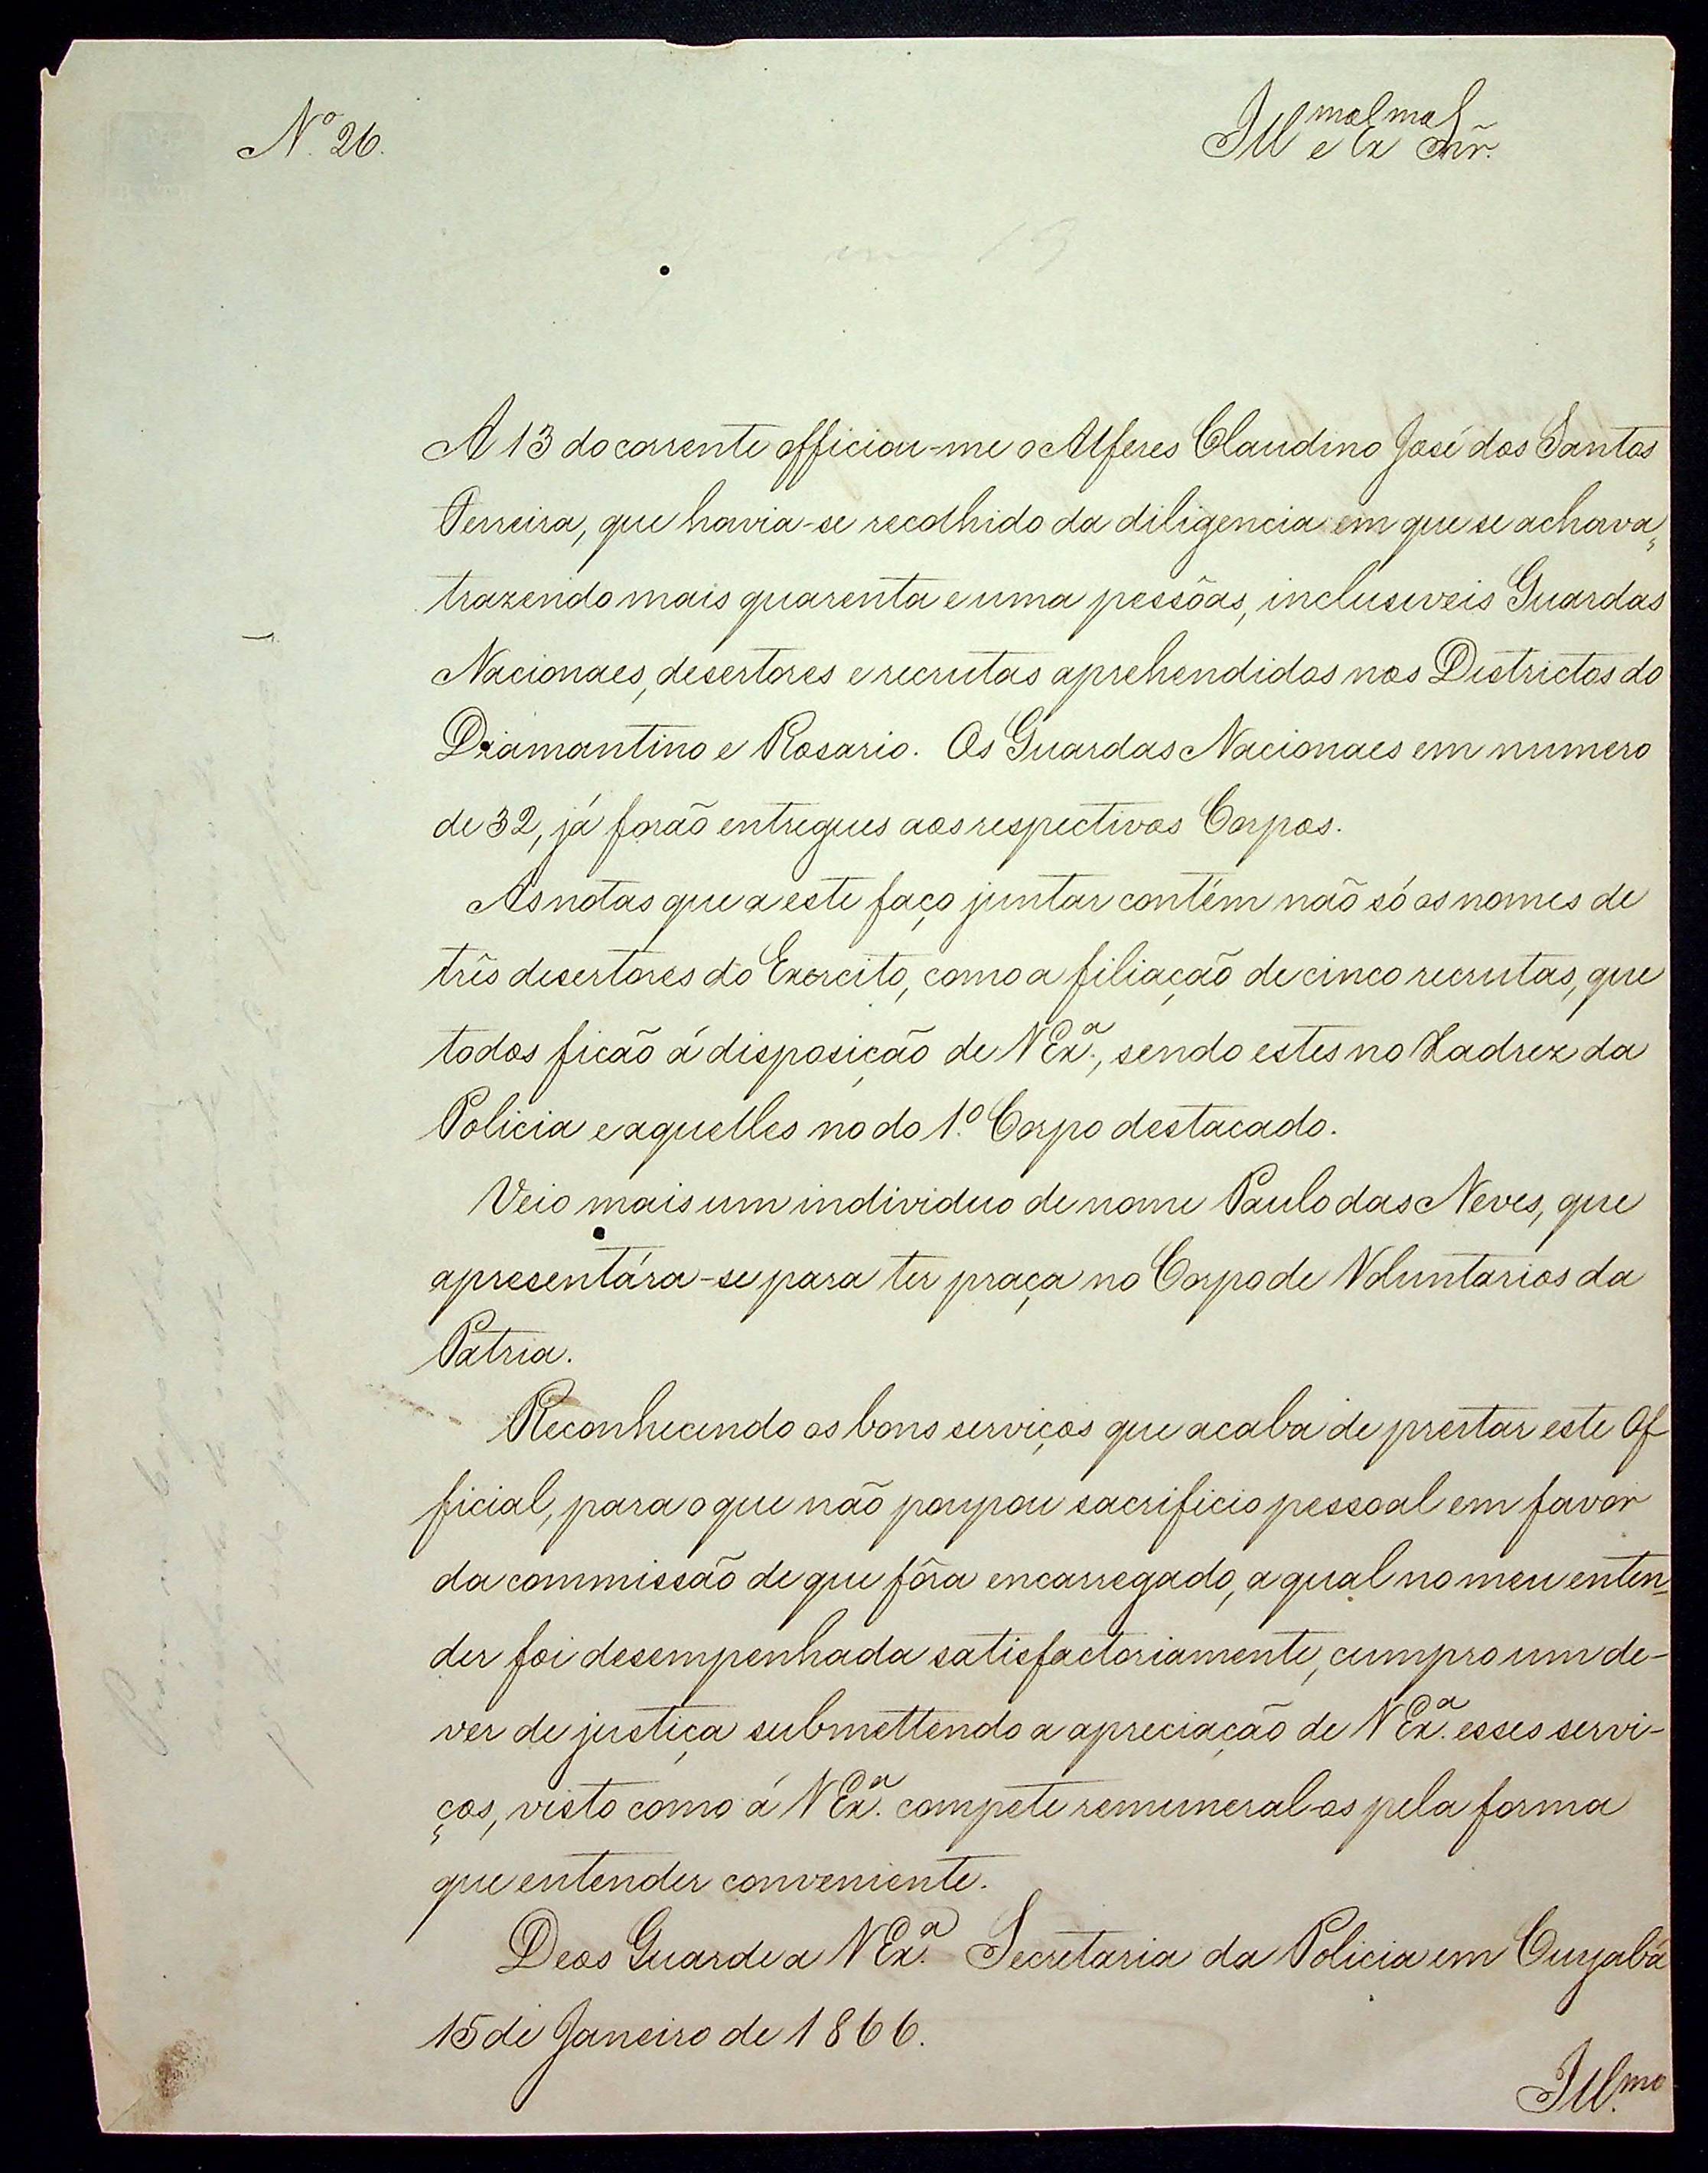 Nº 26.
Illmo e Exmo Sñr.
A 13 do corrente officiou-me o Alferes Claudino José dos Santos
Ferreira, que havia-se recolhido da diligencia em que se achava,
trazendo mais quarenta e uma pessôas, inclusiveis Guardas
Nacionaes, desertores e recrutas aprehendidos nos Districtos do
Diamantino e Rosario. Os Guardas Nacionaes em numero
de 32, já forão entregues aos respectivos Corpos.
As notas que a este faço juntar contém não só os nomes de
três desertores do Exercito, como a filiação de cinco recrutas, que
todos ficão á disposição de V Exª., sendo estes no Xadrez da
Policia e aquelles no do 1º. Corpo destacado.
Veio mais um individuo de nome Paulo das Neves, que
apresentára-se para ter praça no Corpo de Voluntarios da
Patria.
Reconhecendo os bons serviços que acaba de prestar este Of
ficial, para o que não poupou sacrificio pessoal em favor
da commissão de que fôra encarregado, a qual no meu enten-
der foi desempenhada satisfactoriamente, cumpro um de-
ver de justiça submettendo a apreciação de V Exª. esses servi-
ços, visto como á V Exª. compete remuneral-os pela forma
que entender conveniente.
Deos Guarde a V Exª. Secretaria da Policia em Cuyabá
15 de Janeiro de 1866.
Illmo